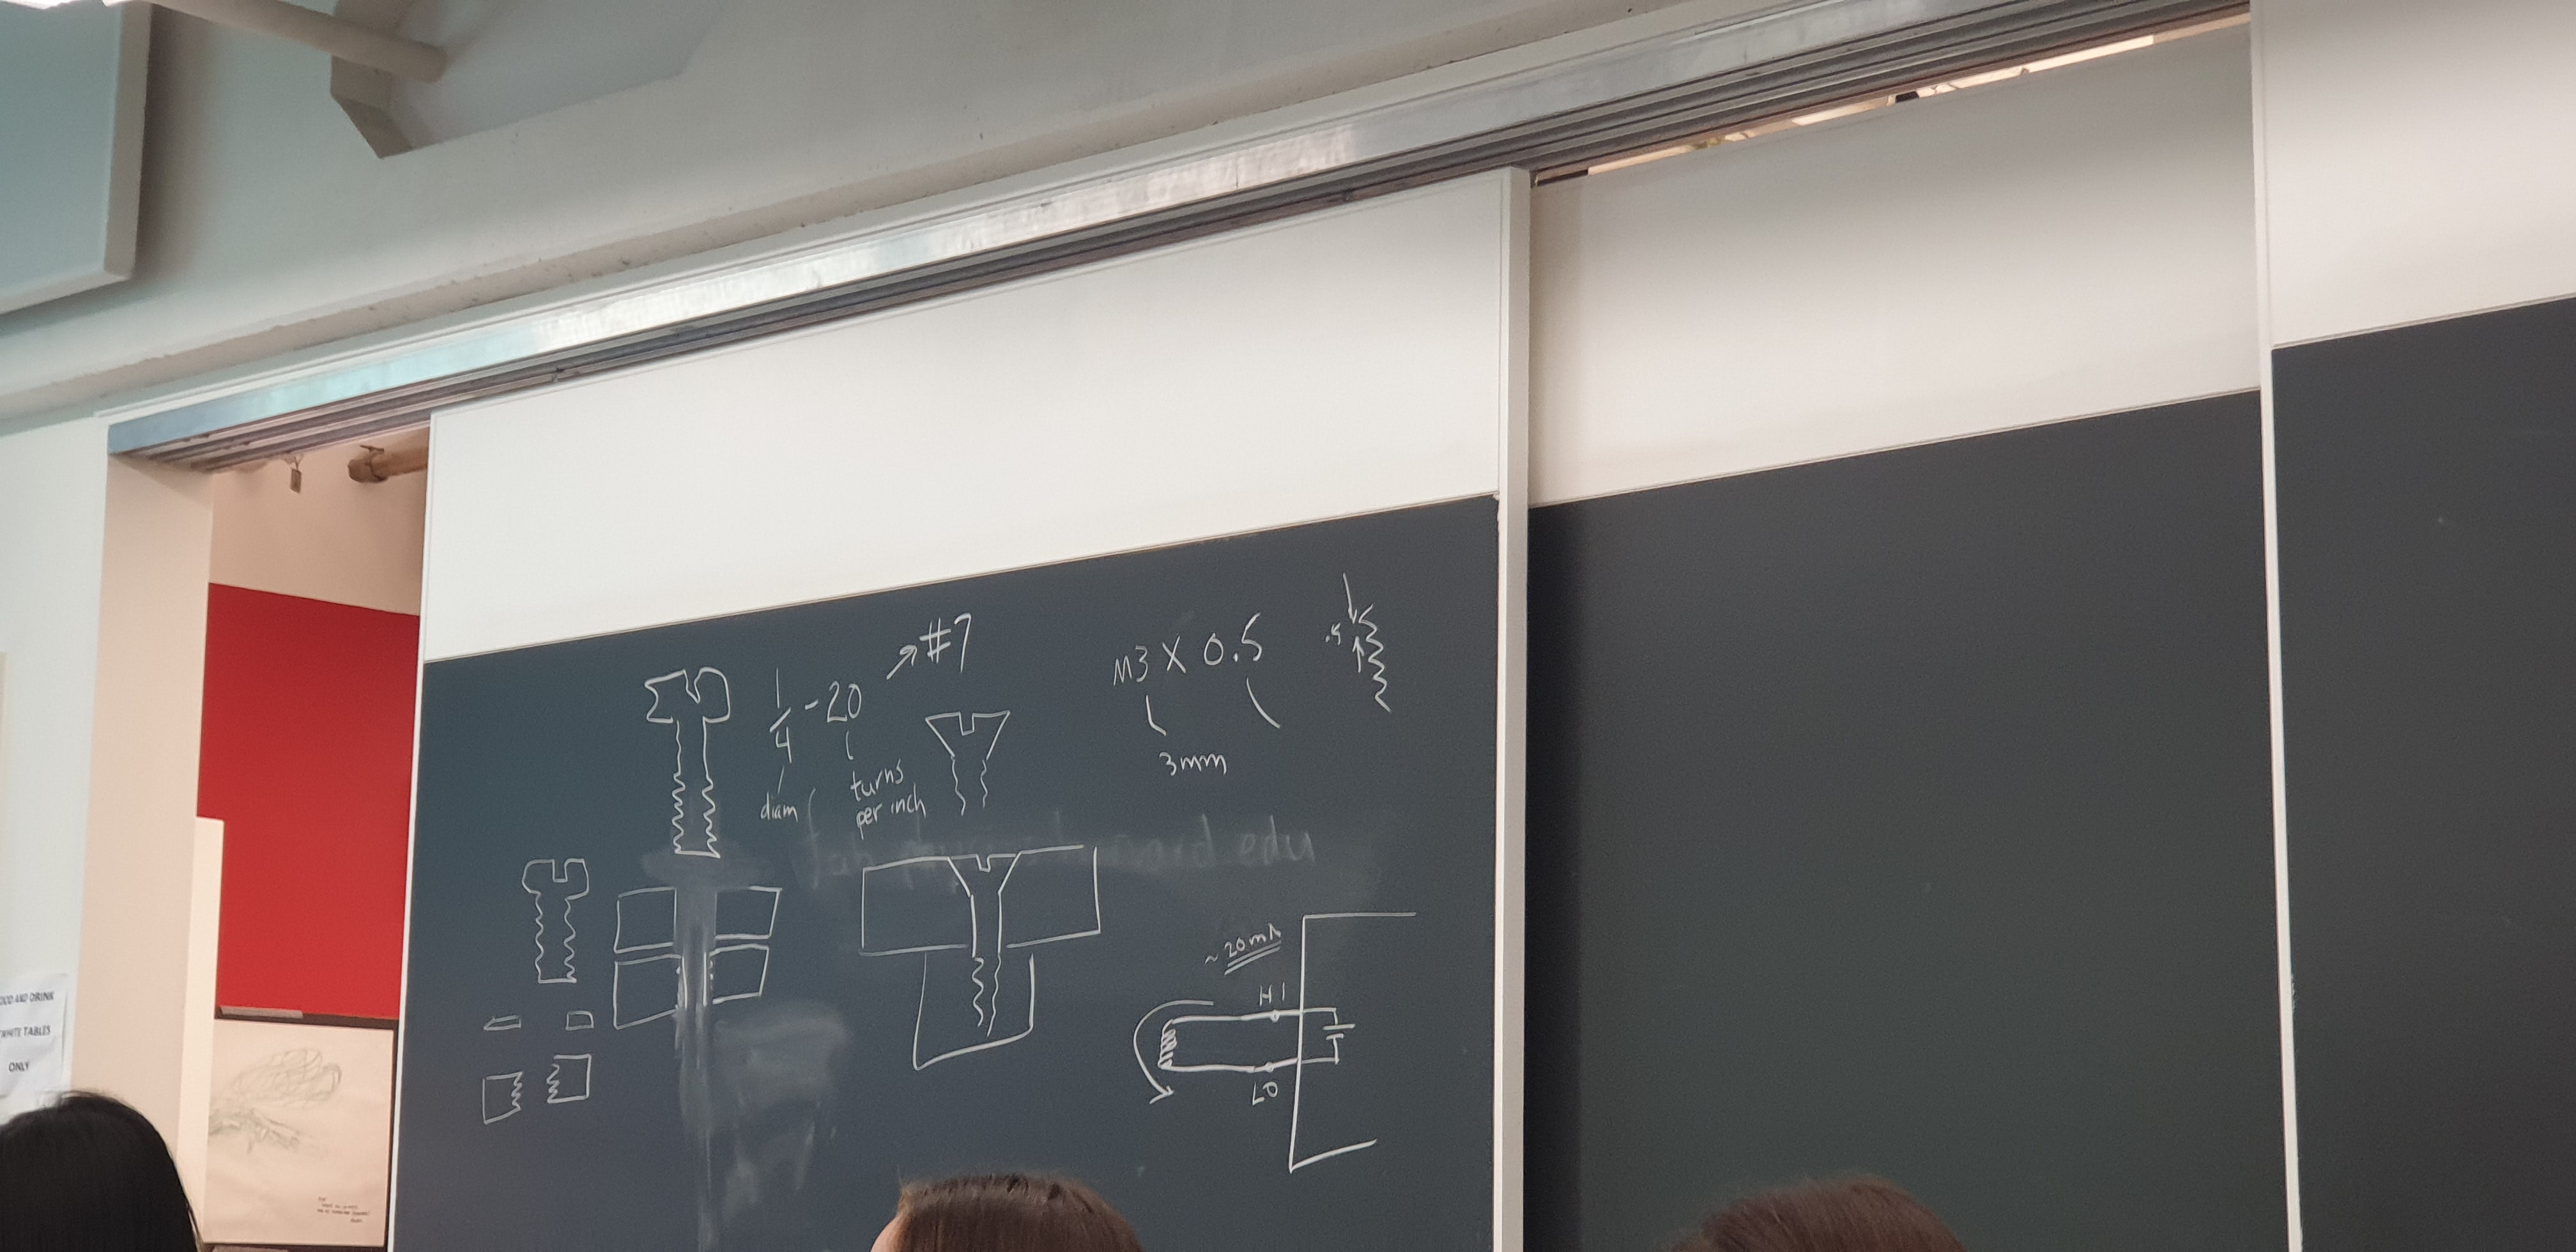 #7
1/4-20
diam
turns
per inch
M3 X 0.5
3mm
.5
~20mA
HI
LO
OOD AND DRINK
WHITE TABLES
ONLY